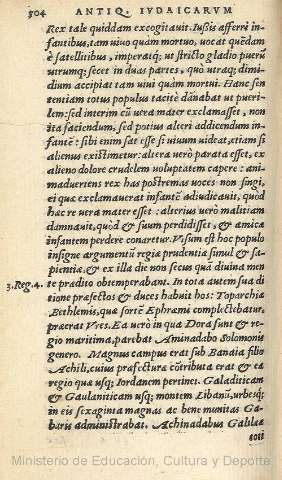 304 ANTIQ. IVDAICARVM
Rex tale quiddam excogitauit. Iussis afferri in-
fantibus, tam uiuo quàm mortuo, uocat quēdam
è satellitibus, imperatq; ut stricto gladio puerū
utrumq; secet in duas partes, quò utraq; dimi-
dium accipiat tam uiui quàm mortui. Hanc sen
tentiam totus populus tacitè dānabat ut pueri-
lem: sed interim cū uera mater exclamasset, non
ita faciendum, sed potius alteri addicendum in-
fantē: sibi enim sat esse si uiuum uideat, etiam si
alienus existimetur: altera uerò parata esset, ex
alieno dolore crudelem uoluptatem capere: ani-
maduertens rex has postremas uoces non fingi,
ei quæ exclamauerat infantē adiudicauit, quòd
hæc re uera mater esset: alterius uerò malitiam
damnauit, quòd & suum perdidisset, & amicæ
infantem perdere conaretur. Visum est hoc populo
insigne argumentū regiæ prudentiæ simul & sa-
pientiæ, & ex illa die non secus quà diuina men
3. Reg. 4. te prædito obtemperabant. In tota autem sua di
tione præfectos & duces habuit hos: Toparchiæ
Bethlemis, quæ sortē Ephræmi complectebatur,
præerat Vres. Ea uerò in qua Dora sunt & re-
gio maritima, parebat Aminadabo Solomonis
genero. Magnus campus erat sub Banaia filio
Achili, cuius præfectura cōtributa erat & ea
regio quæ usq; Iordanem pertinet. Galaditicam
& Gaulaniticam usq; montem Libanū, urbesq;
in eis sexaginta magnas ac bene munitas Ga-
baris administrabat. Achinadabus Galilææ
toti
Ministerio de Educación, Cultura y Deporte